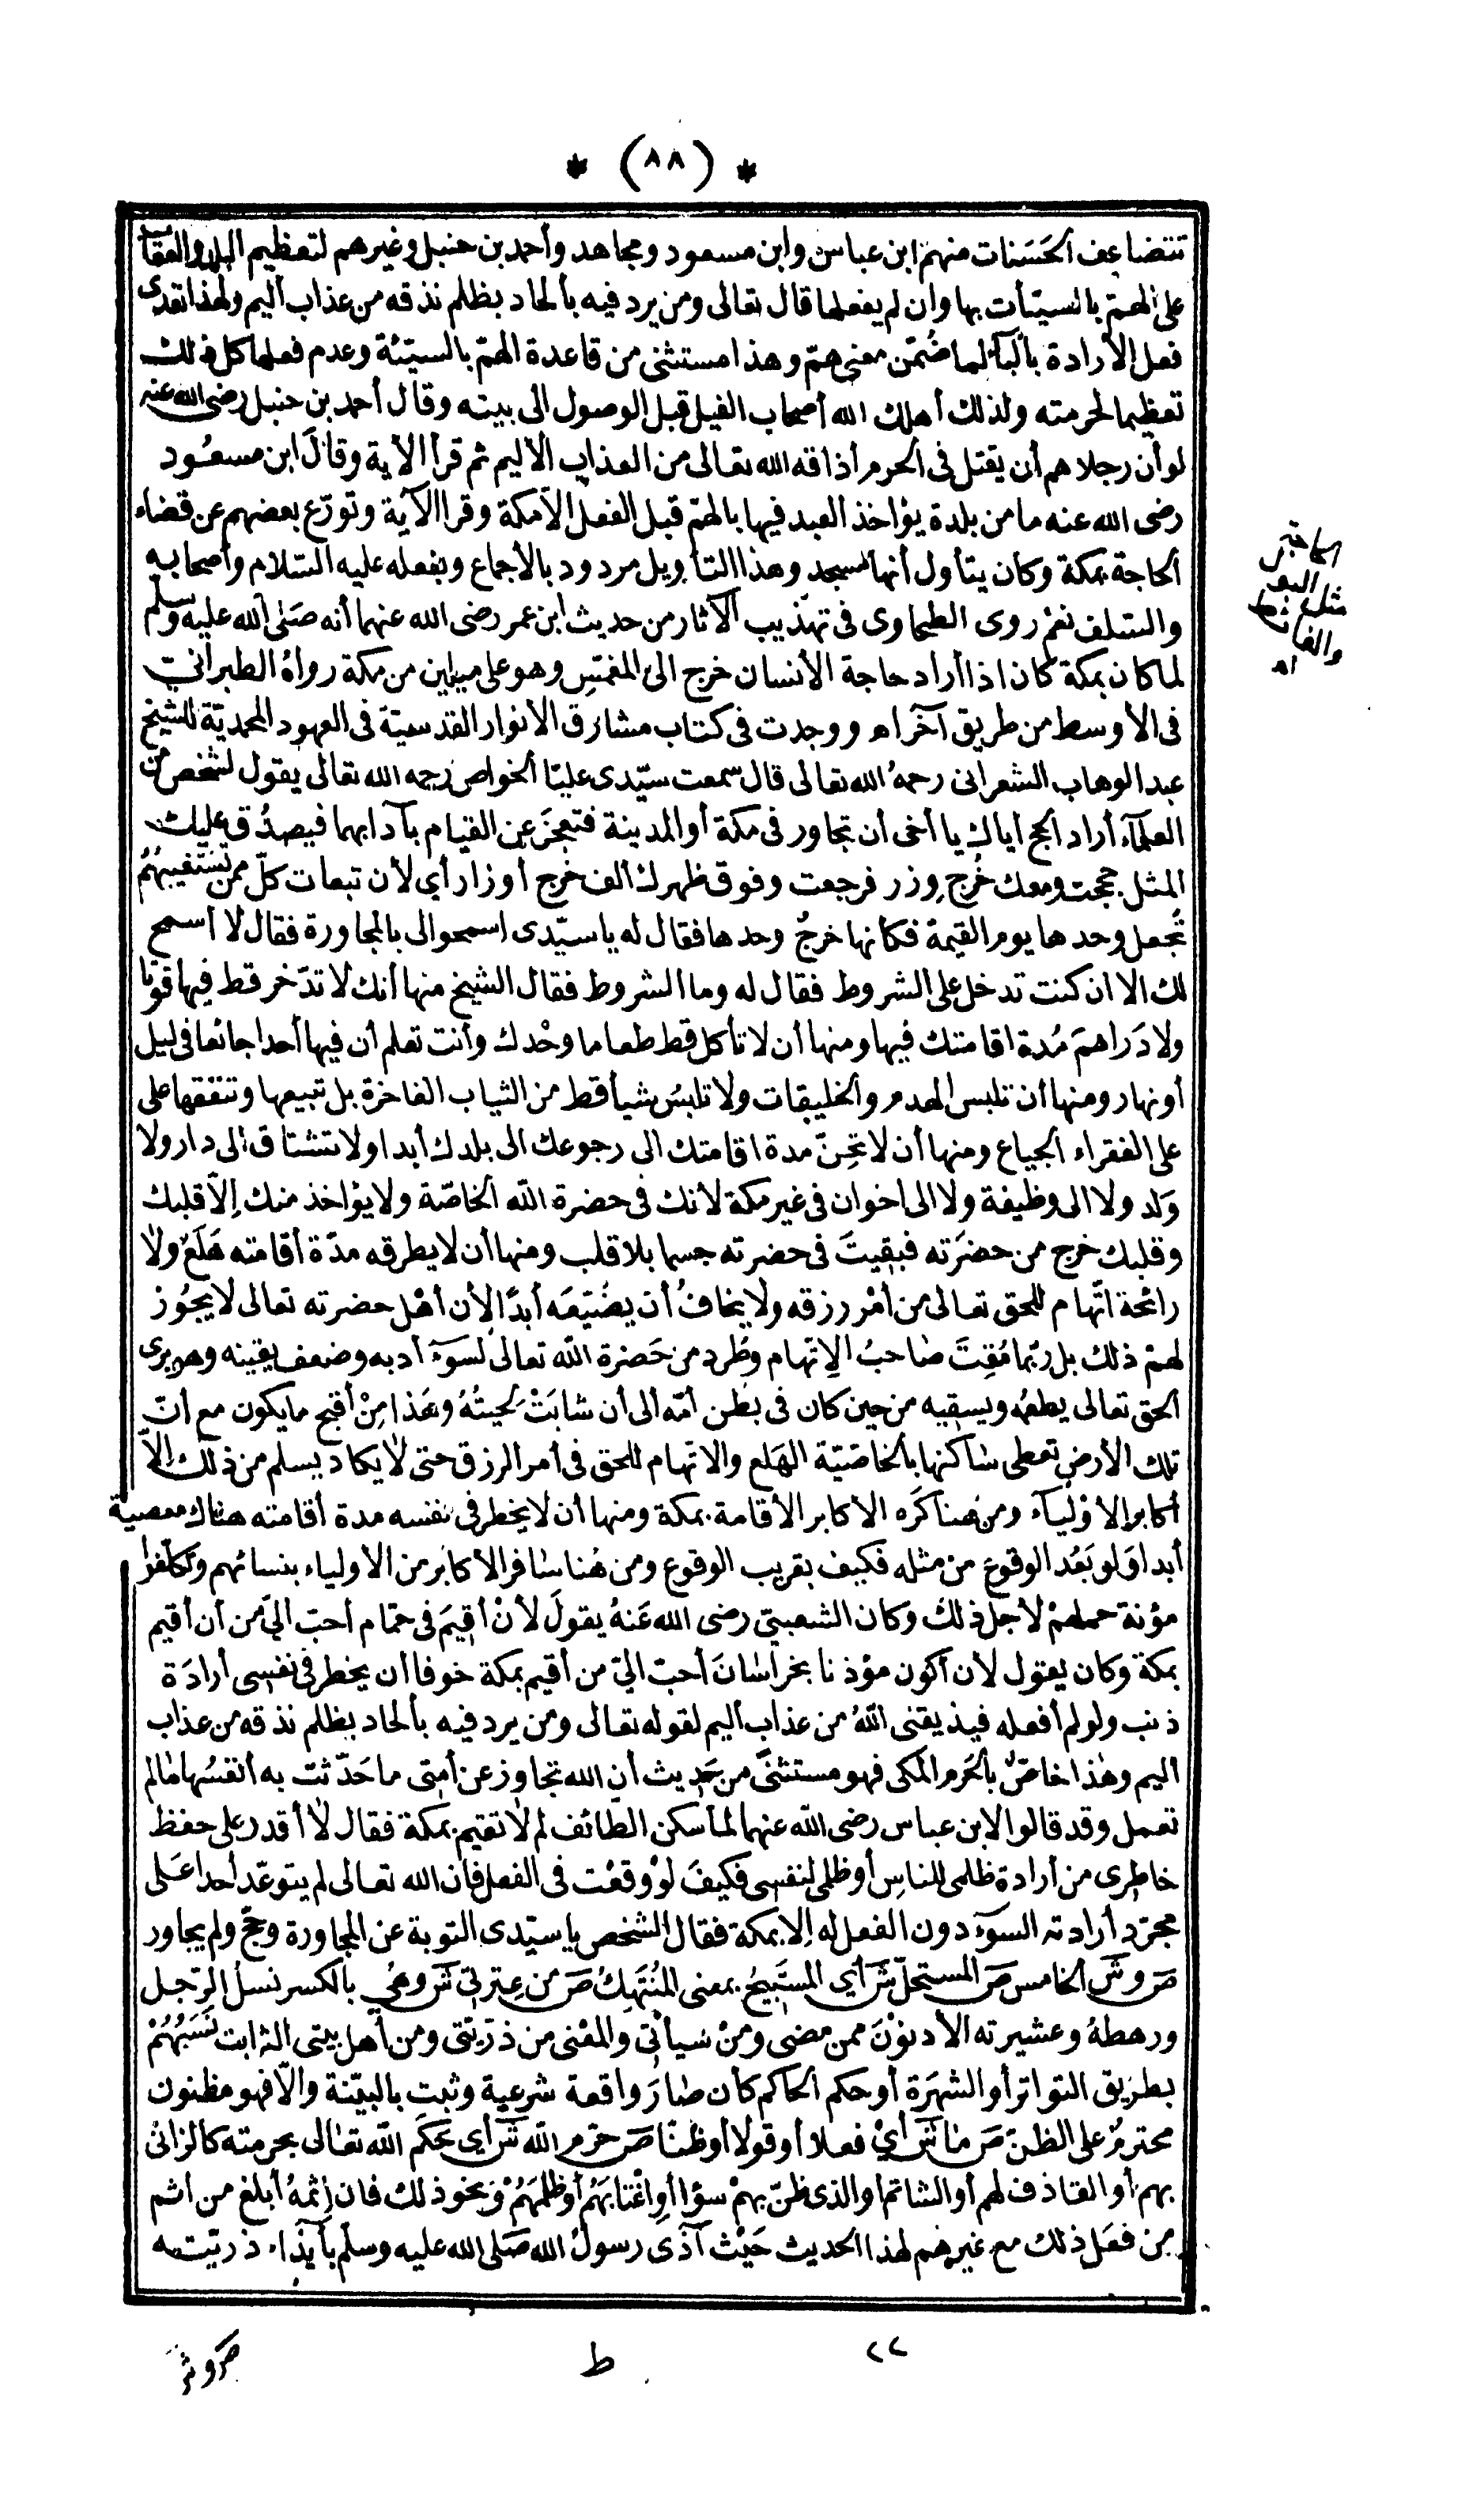 * (٨٨) *
تتضاعف الحَسَنات منهم ابن عباس وابن مسعود ومجاهد وأحمد بن حنبل وغيرهم لتعظيم البلد والعقاب
على الهمّ بالسيّأت بها وان لم يفعلها قال تعالى ومن يرد فيه بألحاد بظلم نذقه من عذاب أليم ولهذا تعدى
فعل الأرادة بالبآء لما ضُمّن معنى همّ وهذا مستثنى من قاعدة الهمّ بالسيّئة وعدم فعلها كل ذلك
تعظيما لحرمته ولذلك أهلك الله أصحاب الفيل قبل الوصول الى بيته وقال أحمد بن حنبل رضى الله عنه
لو أن رجلا هم أن يقتل فى الحرم أذاقه الله تعالى من العذاب الأليم ثم قرأ الأية وقالَ ابن مسعُود
رضى الله عنه ما من بلدة يؤاخذ العبد فيها بالهمّ قبل الفعل الاّ مكة وقرا الآية وتورّع بعضهم عن قضاء
الحاجة بمكة وكان يتأول أنها مسجد وهذا التأويل مردود بالأجماع وبفعله عليه السّلام وأصحابه
والسلف نعمْ روى الطحاوى فى تهذيب الآثار من حديث ابن عمر رضى الله عنهما أنه صَلى الله عليه وسلم
لما كان بمكة كان اذا أراد حاجة الأنسان خرج الى المغمّسِ وهو على ميلين من مكة رواهُ الطبرانىّ
فى الأوسط من طريق آخَر اه ووجدت فى كتاب مشارق الأنوار القدسيّة فى العهود المحمديّة للشيخ
عبد الوهاب الشعرانى رحمهُ الله تعالى قال سمعت سيّدى عليّا الخواص رحمه الله تعالى يقول لشخص من
العلمآء أراد الحج أياك يا أخى أن تجاور فى مكة أو المدينة فتعجَزَ عن القيام بآدابهما فيصدُق عليك
المثل حججت ومعك خُرج وِزر فرجعت وفوق ظهرك ألف خرج أوزار أي لأن تبعات كلّ ممن تَسْتغيبهُمْ
تُجعل وحدها يوم القيمة فكانها خرجُ وحدها فقال له يا سيّدى اسمحوا لى بالمجاورة فقال لا أسمح
لك الا ان كنت تدخل على الشروط فقال له وما الشروط فقال الشيخ منها أنك لا تدّخر قط فيها قوتا
ولا دَراهمَ مُدة اقامتك فيها ومنها أن لا تأكل قط طعاما وحْدك وأنت تعلم أن فيها أحدا جائعا فى ليل
أو نهار ومنها أن تلبس الهدم والخليقات ولا تلبسَ شيأ قط من الثياب الفاخرة بل تبيعها وتنفقها على
على الفقراء الجياع ومنها أن لا تحِنّ مدة اقامتك الى رجوعك الى بلدك أبدا ولا تشتاق الى دار ولا
وَلد ولا الى وظيفة ولا الى اخوان فى غير مكة لأنك فى حضرة الله الخاصّة ولا يؤاخذ منك إلاّ قلبك
وقلبك خرج من حضرَته فبقيتَ فى حضرته جسما بلا قلب ومنها أن لا يطرقه مدّة أقامته هَلَعٌ ولا
رائحة اتّهام للحق تعالى من أمْر رزقه ولا يخافُ أن يضيّعَه أبدًا لأن أهْل حضرته تعالى لا يجُوز
لهمْ ذلك بل ربّما مُقِتَ صاحبُ الإتهام وطُرد من حَضرة الله تعالى لسوَء أدبه وضعف يقينه وهو يرى
الحق تعالى يطعُه ويسقيه من حين كان فى بَطن أمّه الى أن شابَتْ لِحيتُهُ وهَذا مِنْ أقبح ما يكون مع أنّ
تلك الأرض تعطى ساكنها بالخاصّيّة الهَلع والاتّهام للحق فى أمر الرزق حتى لا يكاد يسلم من ذلك الاّ
أكابر الاوْليَآء ومن هُنا كَره الاكابر الأقامة بمكة ومنها أن لا يخطر فى نفسه مدة أقامته هناك معصية
أبدا وَلو بَعُد الوقوع من مثله فكيف بقريب الوقوع ومن هُنا سَافر الأكابَر من الأولياء بنسائهم وتكلّفوا
مؤنة حملهمْ لأجل ذلكَ وكان الشعبىّ رضى الله عَنهُ يقولَ لأنْ أقِيمَ فى حمّام أحبّ الىّ من أن أقيم
بمكة وكان يقول لأن أكون مؤذنا بخراسَانَ أحبّ الىّ من أقيم بمكة خوفا أن يخطر فى نفسى أرادَة
ذنب ولو لم أفعله فيذيقنى اللهُ من عذاب أليم لقوله تعالى ومن يرد فيه بألحاد بظلم نذقه من عذاب
اليم وهَذا خاصّ بالحَرم المكى فهو مستثنىً من حَديث أن الله تجاوز عن أمتى ما حَدّثت به أنفسُها مالم
تعمل وقد قالوا لابن عباس رضى الله عنهما لما سكن الطائف لم لا تقيم بمكة فقال لا أقدر على حفظ
خاطِرى من أرادة ظلمى للناسِ أو ظلمى لنفسى فكيفَ لوْ وقعْت فى الفعل فان الله تعالى لم يتوعّد أحدا عَلى
مجرّد أرادته السوَء دون الفعل له إلا بمكة فقال الشخص يا سيّدى التوبة عن المجاورة وحجّ ولم يجاور
صَ وشَ الخامس صَ المستحلّ شَ أي المستَبيحُ بمعنى المُنْتهِكُ صَ من عِترتى شَ وهُي بالكسر نسلُ الرّجل
ورهطهُ وعشيرته الأدنوْنَ ممن مضى ومنْ سَيأتى والمعْنى من ذرّيتى ومن أهل بيتى الثابت نسَبُهُمْ
بطرَيق التواتر أو الشهَرَة أو حكم الحاكم كأن صَارَ واقعة شرعية وثبت بالبيّنة والاّ فهو مظنون
محترمٌ على الظنّ صَ مَا شَ أيْ فعلا أو قولا أو ظنّا صَ حرّم الله شَ أي حَكَم الله تعَالى بحرمته كالزانى
بهم أو القاذف لهم أو الشاتم أو الذى ظنّ بهمْ سوْا أو اغْتابَهُمْ أو ظلمَهُمْ وَنحو ذلك فان إثمهُ أبلغ من أثم
من فعَل ذلك مع غيرهم لهذا الحديث حَيْث آذى رسولُ الله صَلى الله عليه وسلم بأيذَاء ذريّته
الحاجة
مثل البول
والغائط
اه
٢٢
ط
صَ وشَ